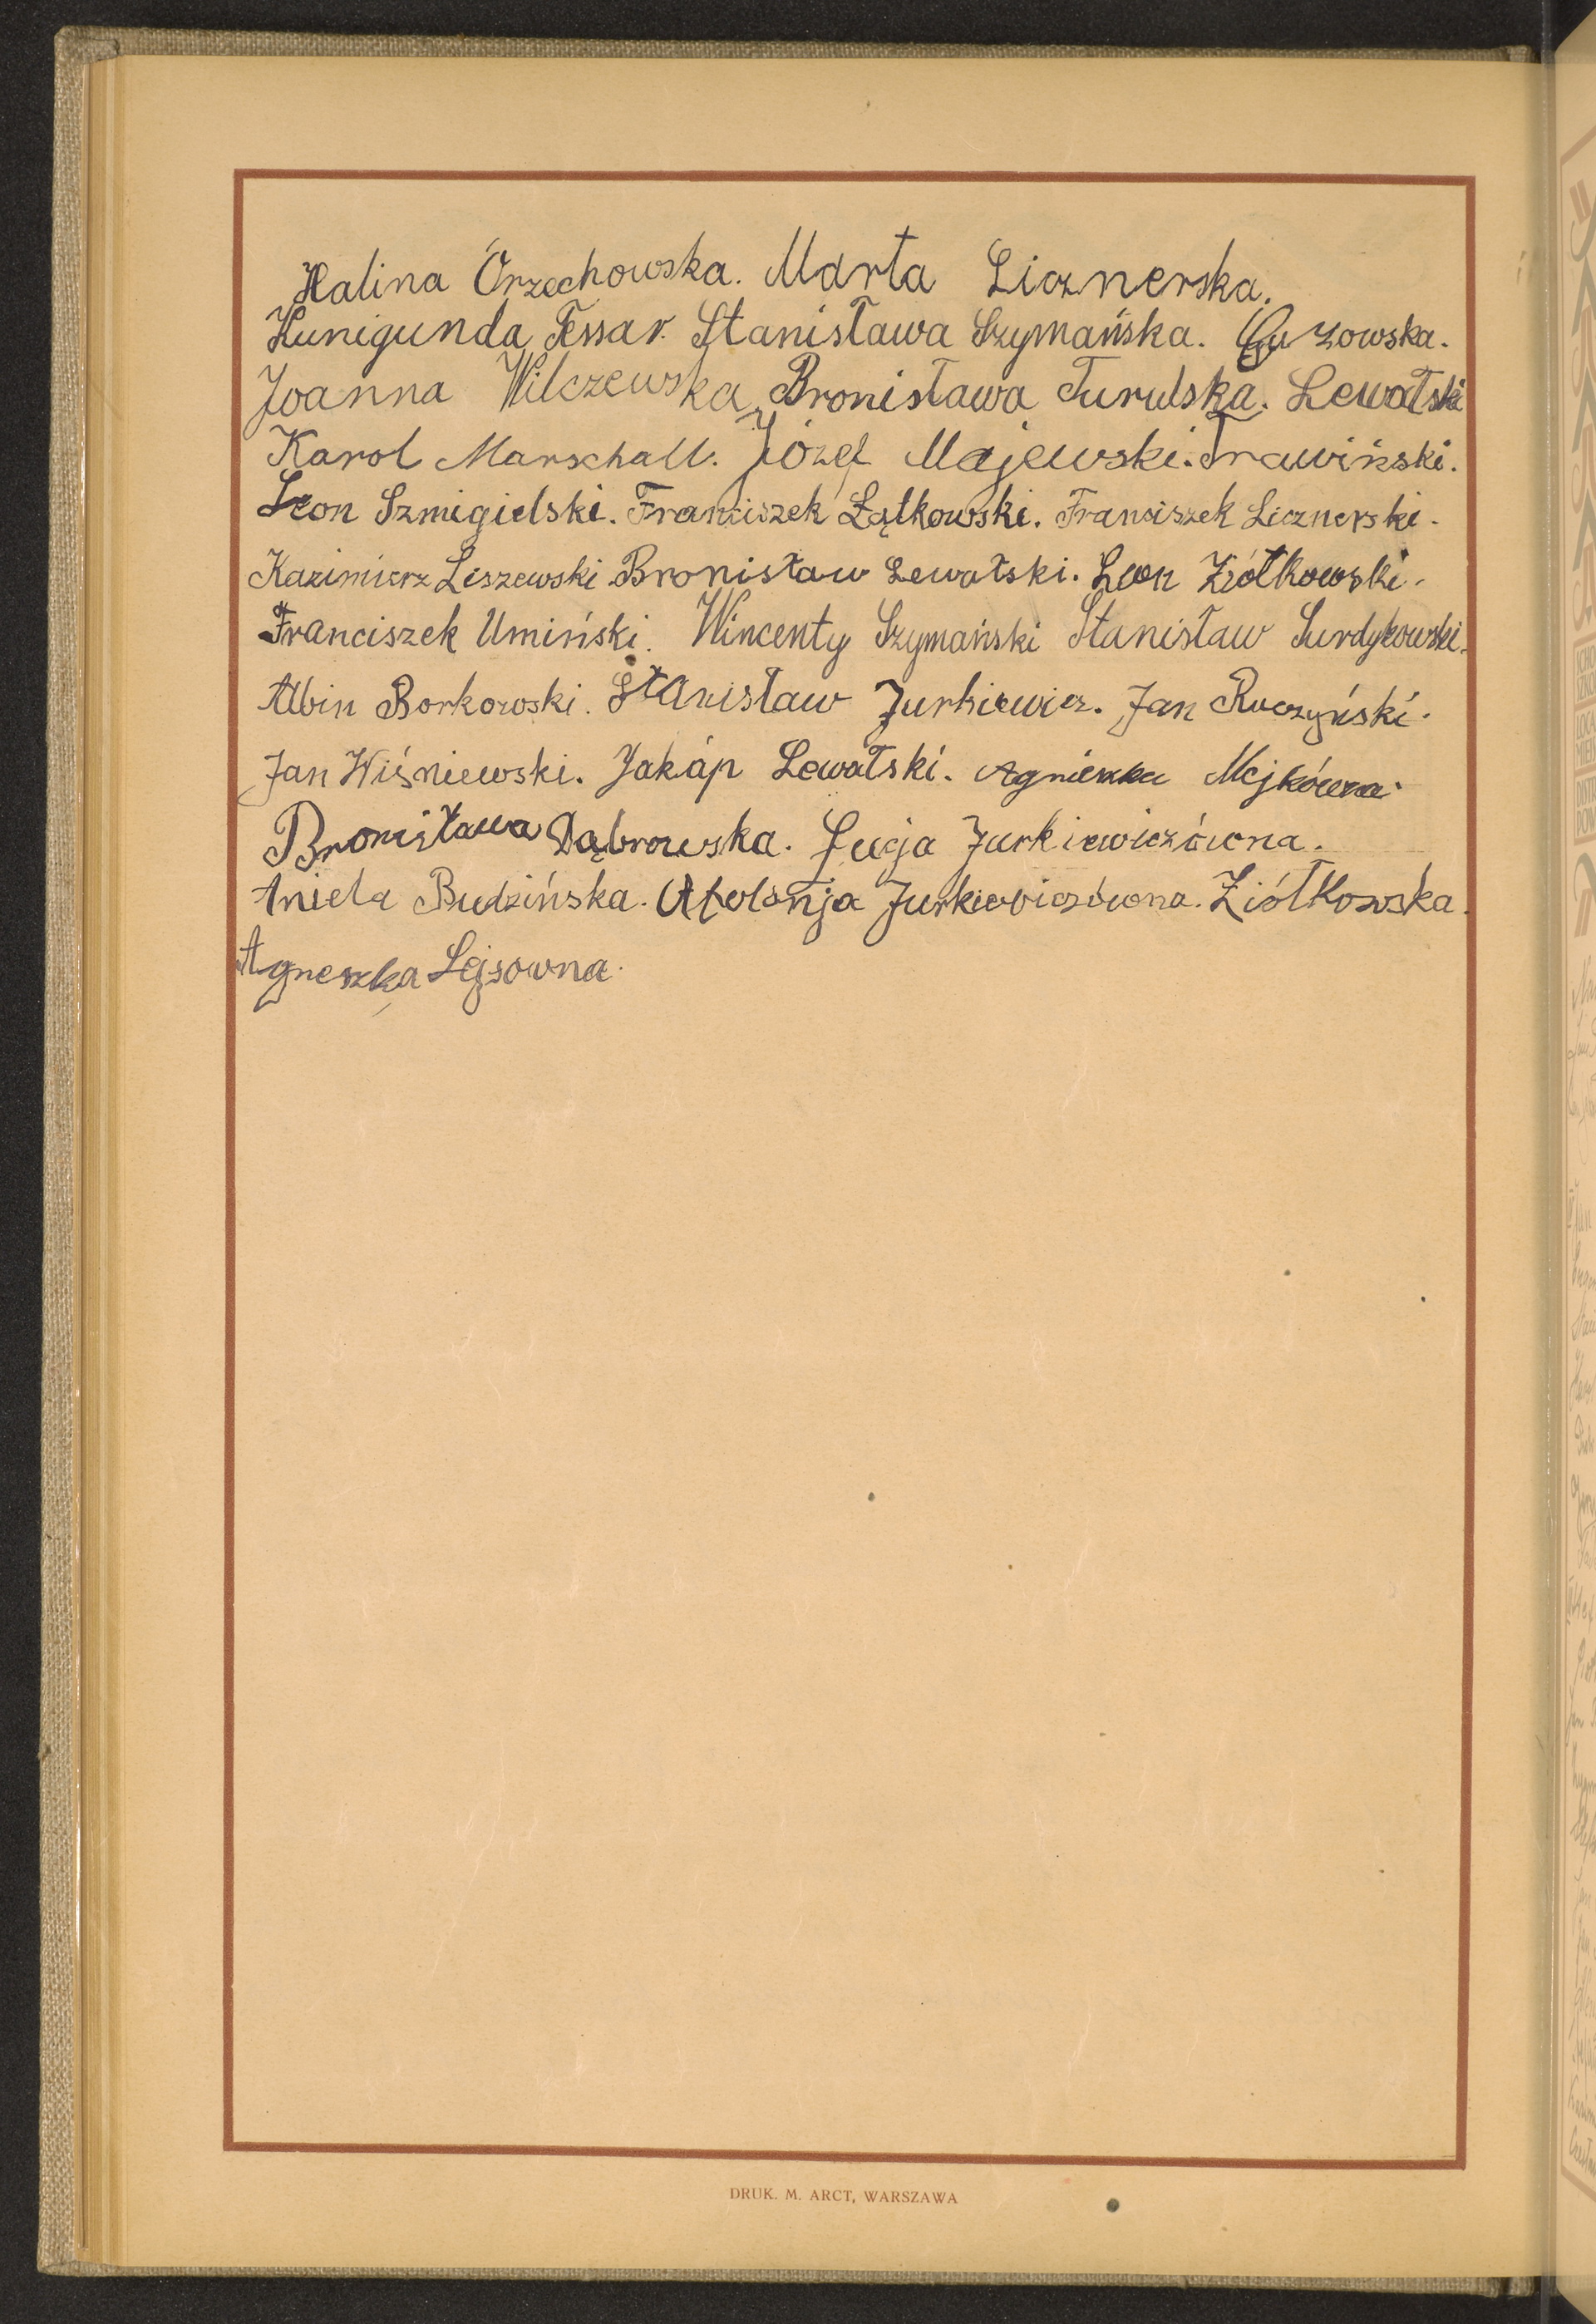 Halina Orzechowska. Marta Licznerska.
Kunigunda Tessar. Stanisława Szymańska.
Joanna Wilczewska, Bronisława Turulska. Lewalski
Karol Marschall. Józef Majewski. Trawiński.
Leon Szmigielski. Franciszek Łątkowski. Franciszek Licznerski.
Kazimierz Leszewski. Bronisław Lewalski. Leon Ziółkowski.
Franciszek Umiński. Wincenty Szymański Stanisław Surdykowski.
Albin Borkowski. Stanisław Jurkiewicz. Jan Ruczyński.
Jan Wiśniewski. Jakáp Lewalski. Agnieszka Mejkówna.
Bronisława Dąbrowska. Łucja Jurkiewiczówna.
Aniela Budzińska. Apolonja Jurkiewiczówna. Ziółkowska.
Agneszka Lejsowna.
DRUK. M. ARCT, WARSZAWA